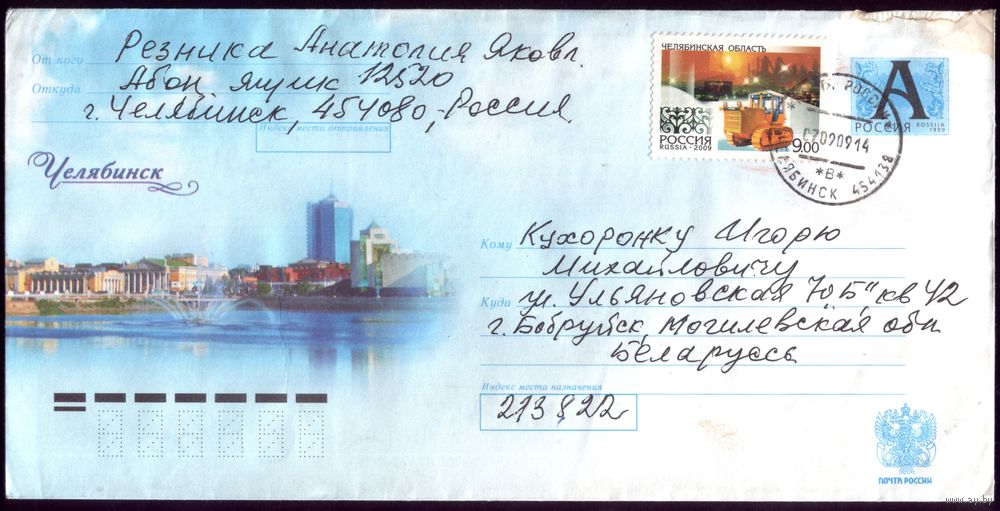 От кого Резника Анатолия Яковл.
Откуда Абон. ящик 12520
г. Челябинск, 454080, Россия.
Индекс места отправления
Челябинск
ЧЕЛЯБИНСКАЯ ОБЛАСТЬ
РОССИЯ
RUSSIA · 2009
9.00
А
РОССИЯ
ROSSIJA
1999
*В*
454138
Кому Кухоронку Игорю
Михайловичу
Куда ул. Ульяновская 70 "Б" кв 42
г. Бобруйск, Могилевская обл
Беларуссь
Индекс места назначения
213822
ПОЧТА РОССИИ
www.ay.by